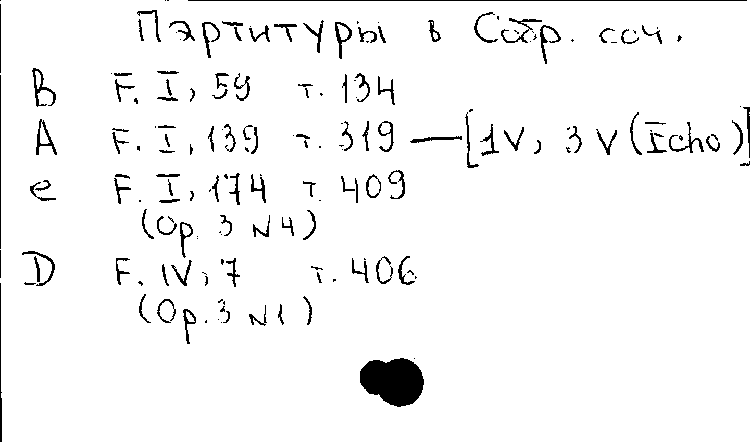 Партитуры в Собр. соч.
B F. I, 59 т. 134
A F. I, 139 т. 319 — [1V, 3V (Echo)]
e F. I, 174 т. 409
(Op. 3 N4)
D F. IV, 7 т. 406
(Op. 3 N1)